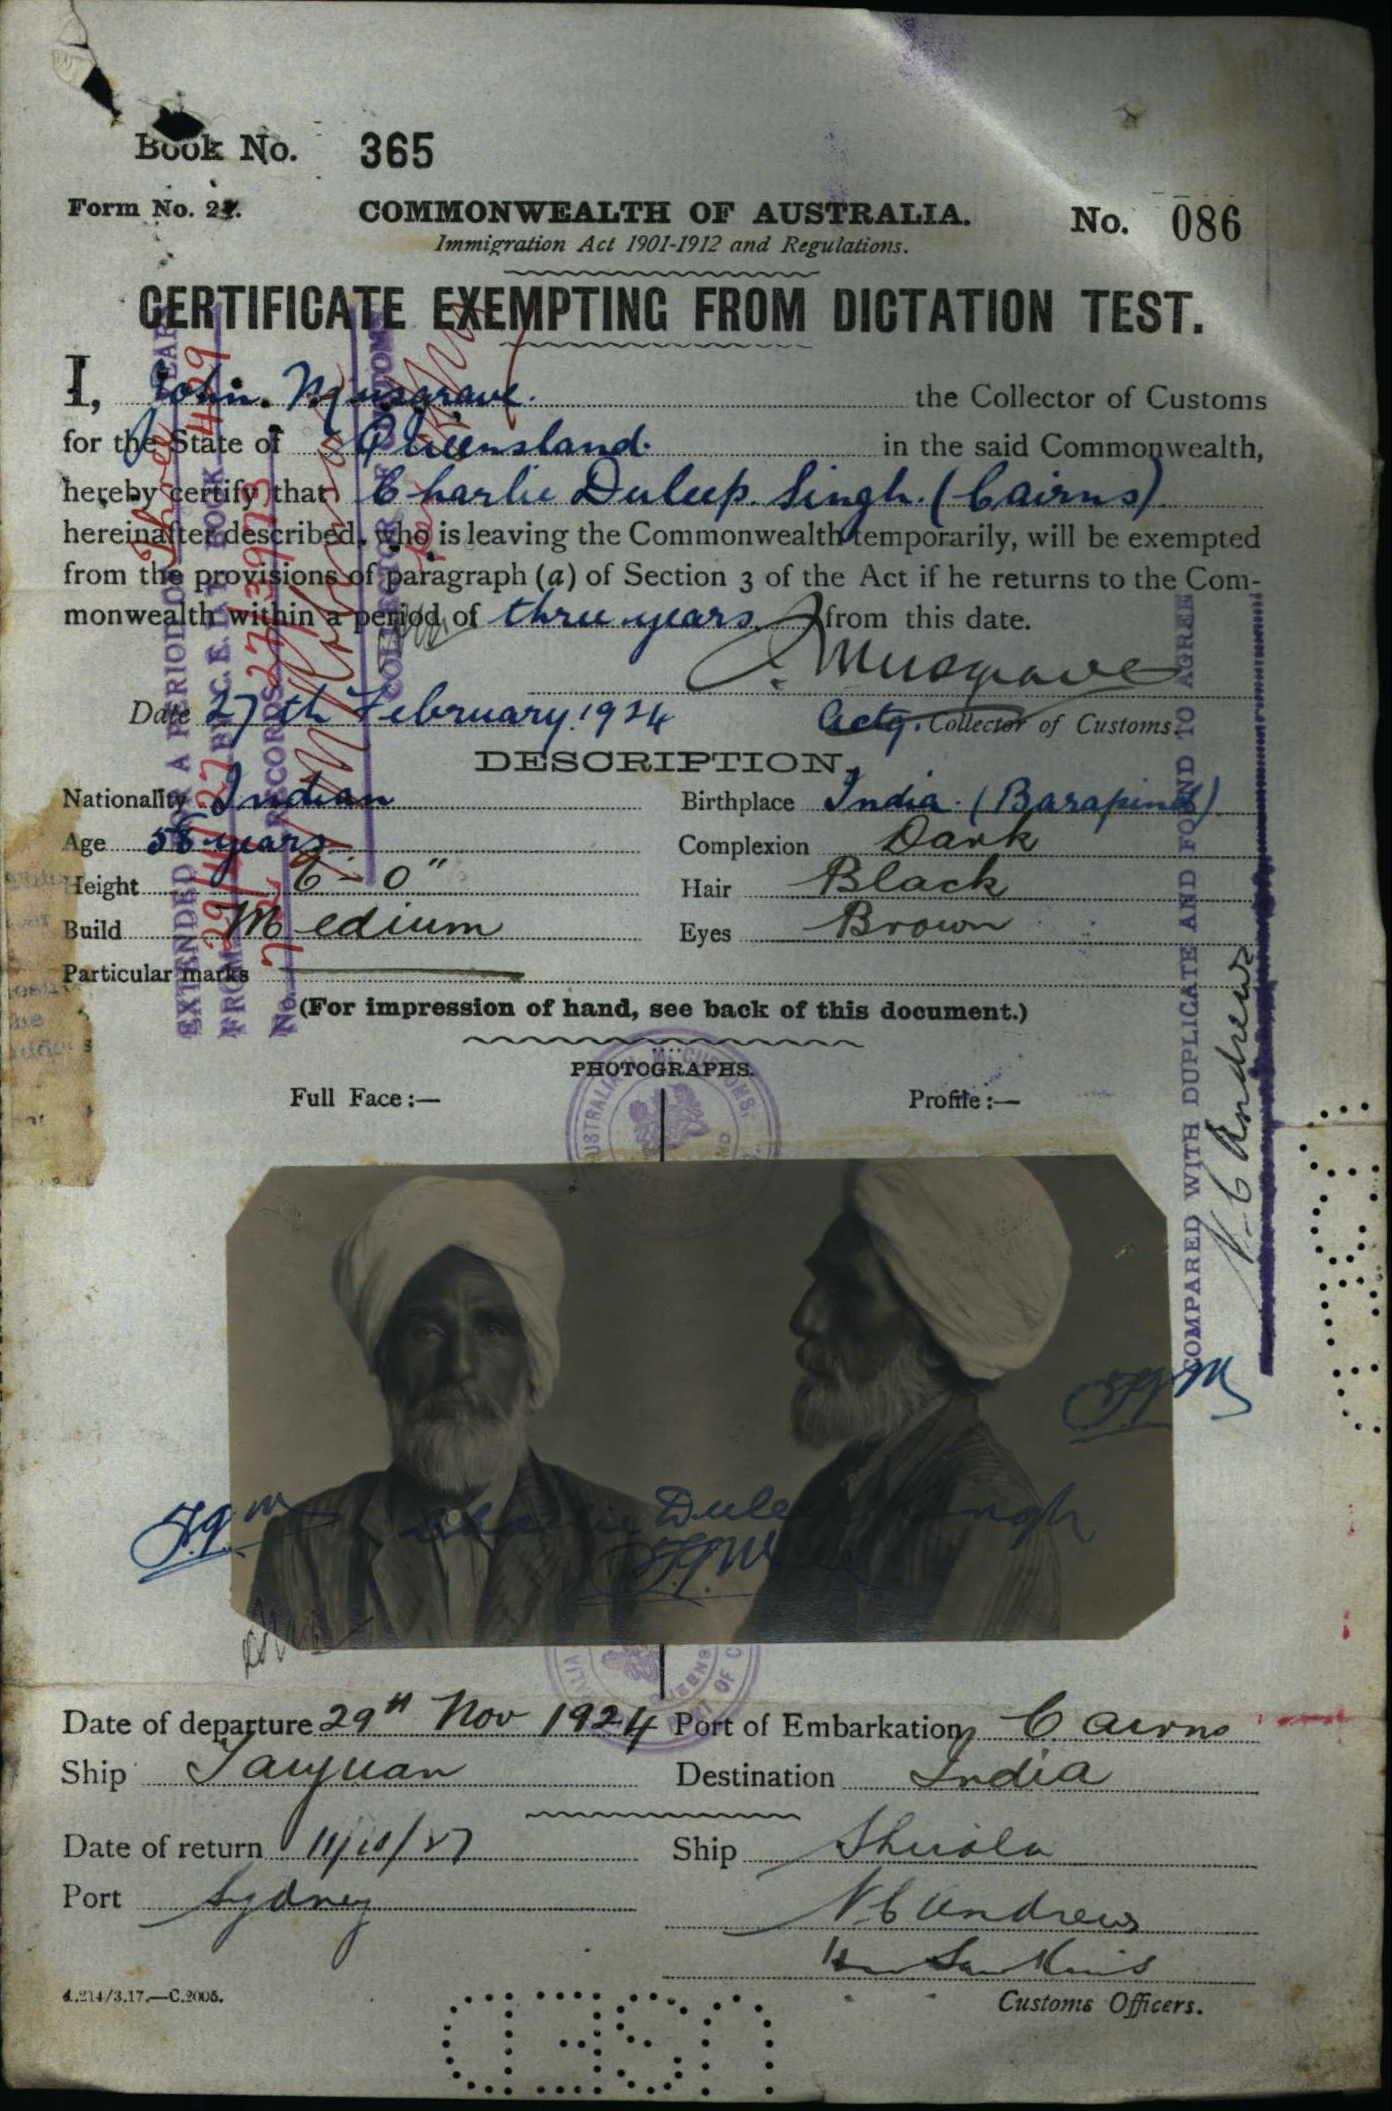 Book No. 365
Form No. 21.
COMMONWEALTH OF AUSTRALIA.
No. 086
Immigration Act 1901-1912 and Regulations.
CERTIFICATE EXEMPTING FROM DICTATION TEST.
I, John Musgrave. the Collector of Customs
for the State of Queensland. in the said Commonwealth,
hereby certify that Charlie Duleep Singh. (Cairns)
hereinafter described, who is leaving the Commonwealth temporarily, will be exempted
from the provisions of paragraph (a) of Section 3 of the Act if he returns to the Com-
monwealth within a period of three years from this date.
J. Musgrave
Date 27th February. 1924
Actg. Collector of Customs.
DESCRIPTION.
Nationality Indian Birthplace India. (Barapind)
Age 58 years Complexion Dark
Height 6 - 0" Hair Black
Build Medium Eyes Brown
Particular marks
(For impression of hand, see back of this document.)
PHOTOGRAPHS.
Full Face:— Profile:—
Charlie Duleep Singh
Date of departure 29th Nov 1924 Port of Embarkation Cairns
Ship Taiyuan Destination India
Date of return 11/10/27 Ship
Port Sydney N. C. Andrews
Customs Officers.
C.2005.
EXTENDED FOR A PERIOD OF Three YEARS
FROM 29/11/27 BOOK 429
No. RECORDS 27/
COLLECTOR OF CUSTOMS
COMPARED WITH DUPLICATE AND FOUND TO AGREE
N. C. Andrews